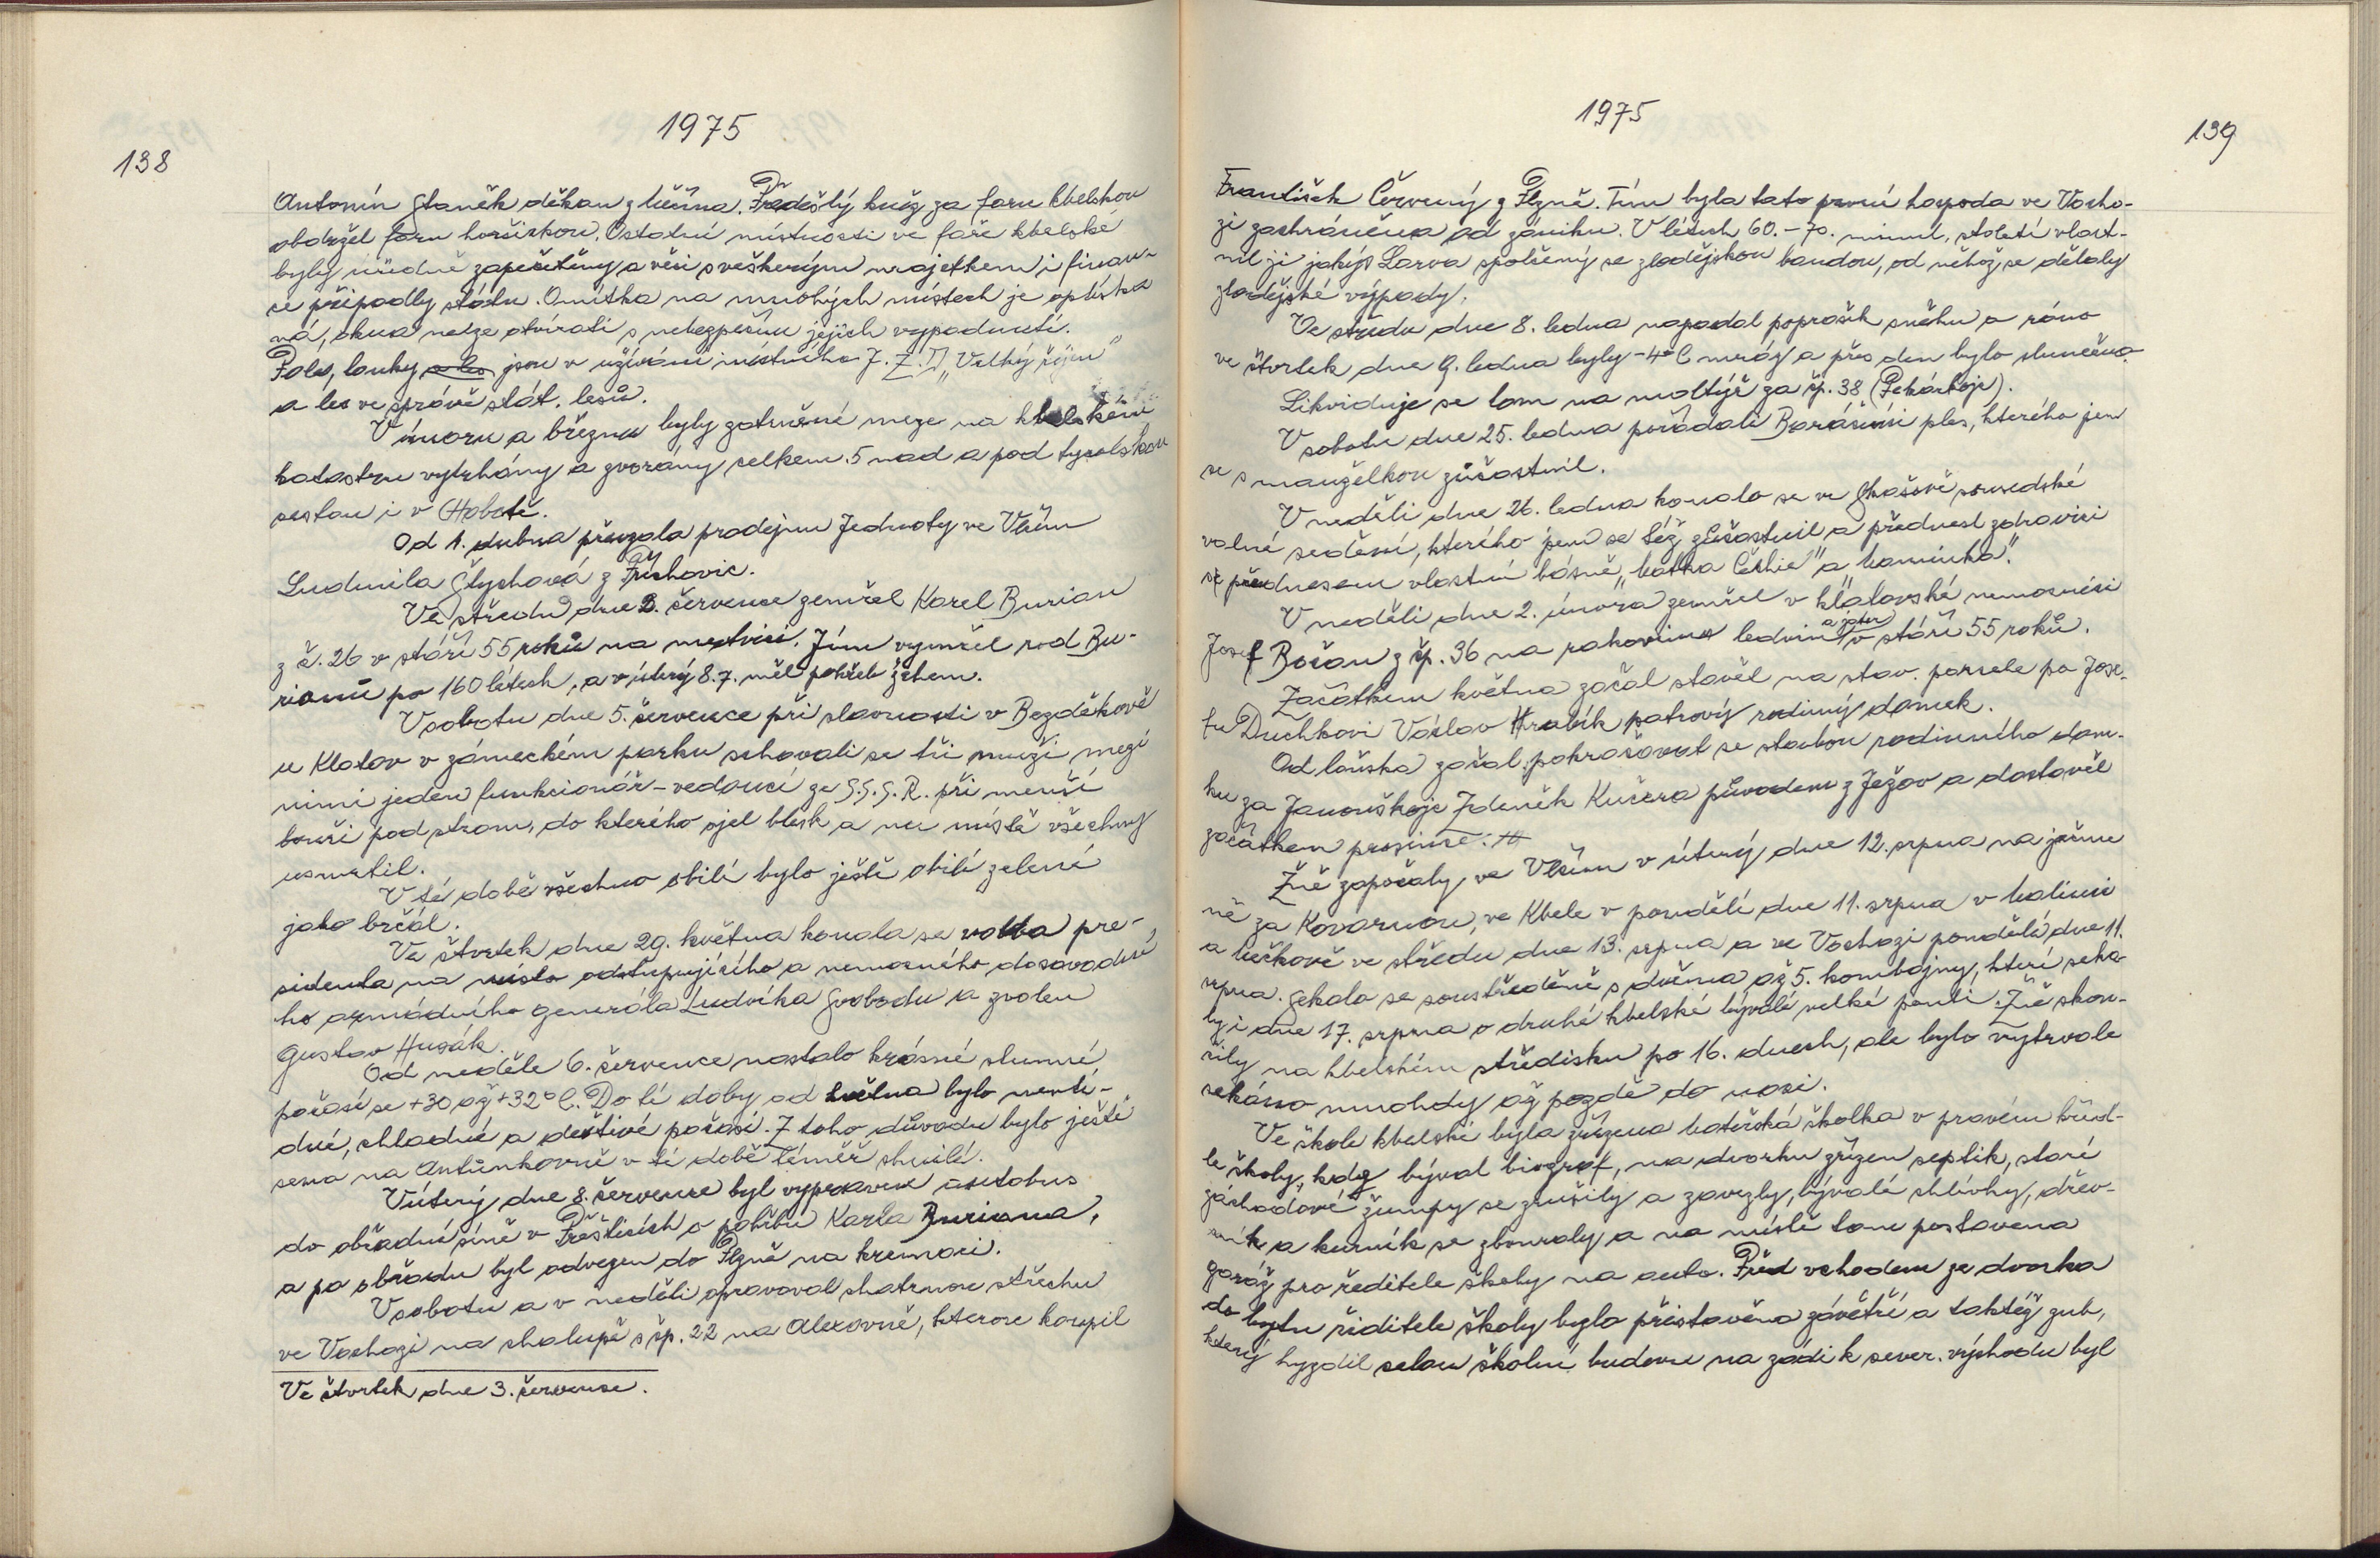 1975
138
Antonín Staněk děkan z Lučína. Předešlý kněz za faru kbelskou
obdržel faru horšickou. Ostatní místnosti ve faře kbelské
byly úředně zapečetěny a věci s veškerým majetkem i finan-
ce připadly státu. Omítka na mnohých místech je oplíska
ná, okna nelze otvírati s nebezpečím jejich vypadnutí.
Pole, louky a les jsou v užívání místního J.Z.D. „Velký říjen"
a les ve správě stát. lesů.
V únoru a březnu byly zatrněné meze na kbelském
katastru vytrhány a zvorány celkem 5 nad a pod tyrolskou
cestou i v Hobotě.
Od 1. dubna převzala prodejnu Jednoty ve Vlčím
Ludmila Štychová z Příchovic.
Ve středu dne 2. července zemřel Karel Burian
z č. 26 v stáří 55 roků na mrtvici. Jím vymřel rod Bu-
rianů po 160 létech, a v úterý 8.7. měl pohřeb žehem.
V sobotu dne 5. července při slavnosti v Bezděkově
u Klatov v zámeckém parku schovali se tři muži mezi
nimi jeden funkcionář - vedoucí ze S.S.S.R. při menší
bouři pod strom, do kterého sjel blesk a na místě všechny
usmrtil.
V té době všechno obilí bylo ještě obilí zelené
jako brčál.
Ve čtvrtek dne 29. května konala se volba pre-
sidenta na místo odstupujícího a nemocného dosavadní
ho armádního generála Ludvíka Svobodu a zvolen
Gustav Husák.
Od neděle 6. července nastalo krásné slunné
počasí se +30 až +32°C. Do té doby od května bylo nevlí-
dné, chladné a deštivé počasí. Z toho důvodu bylo ještě
sena na Antünkovně v té době téměř shnilé.
V úterý dne 8. července byl vypraven autobus
do obřadní síně v Přešticích o pohřbu Karla Buriana,
a po obřadu byl odvezen do Plzně na kremaci.
V sobotu a v neděli opravoval chatrnou střechu
ve Vochozi na chalupě s čp. 22 na Alexovně, kterou koupil
Ve čtvrtek dne 3. července.
1975
139
František Červený z Plzně. Tím byla tato první hospoda ve Vocho-
zi zachráněna od zániku. V létech 60.-70. minul. století vlast-
nil ji jakýs Larva spolčený se zlodějskou bandou, od něhož se dělaly
zlodějské výpady.
Ve středu dne 8. ledna napadal poprašek sněhu a ráno
ve čtvrtek dne 9. ledna byly -4°C mráz a přes den bylo slunečno.
Likviduje se lom na moltýř za čp. 38 (Pekárkojc).
V sobotu dne 25. ledna pořádali Baráčníci ples, kterého jsem
se s manželkou zůčastnil.
V neděli dne 26. ledna konalo se ve Skašově sousedské
volné sedění, kterého jsem se též zůčastnil a přednesl zdravici
se přednesem vlastní básně „Matka Čechie" a „Maminka".
V neděli dne 2. února zemřel v klatovské nemocnici
Josef Bočan z čp. 36 na rakovinu ledvin a jater v stáří 55 roků.
Začátkem května začal stavěl na stav. parcele po Jose-
fu Duchkovi Václav Hrabík patrový rodinný domek.
Od loňska začal pokračovat se stavbou rodinného dom-
ku za Janouškojc Zdeněk Kučera původem z Ježov a dostavěl
začátkem prosince.
Žně započaly ve Vlčím v úterý dne 12. srpna na ječme
ně za Kovárnou, ve Kbele v pondělí dne 11. srpna v Malinci
a Lučkově ve středu dne 13. srpna a ve Vochozi pondělí dne 11.
srpna. Sekalo se soustředěně s dvěma až 5. kombajny, kteří seka-
ly i dne 17. srpna o druhé kbelské bývalé velké pouti. Žně skon-
čily na kbelském středisku po 16. dnech, ale bylo vytrvale
sekáno mnohdy až pozdě do noci.
Ve škole kbelské byla zřízena mateřská školka v pravém kříd-
le školy, kdy býval biograf, na dvorku zřízen septik, staré
záchodové žumpy se zrušily a zavezly, bývalé chlívky, dřev-
ník a kurník se zbouraly a na místě tom postavena
garáž pro ředitele školy na auto. Před vchodem ze dvorka
do bytu řiditele školy bylo přistavěno závětří a taktéž zub,
který hyzdil celou školní budovu na zádi k sever. východu byl